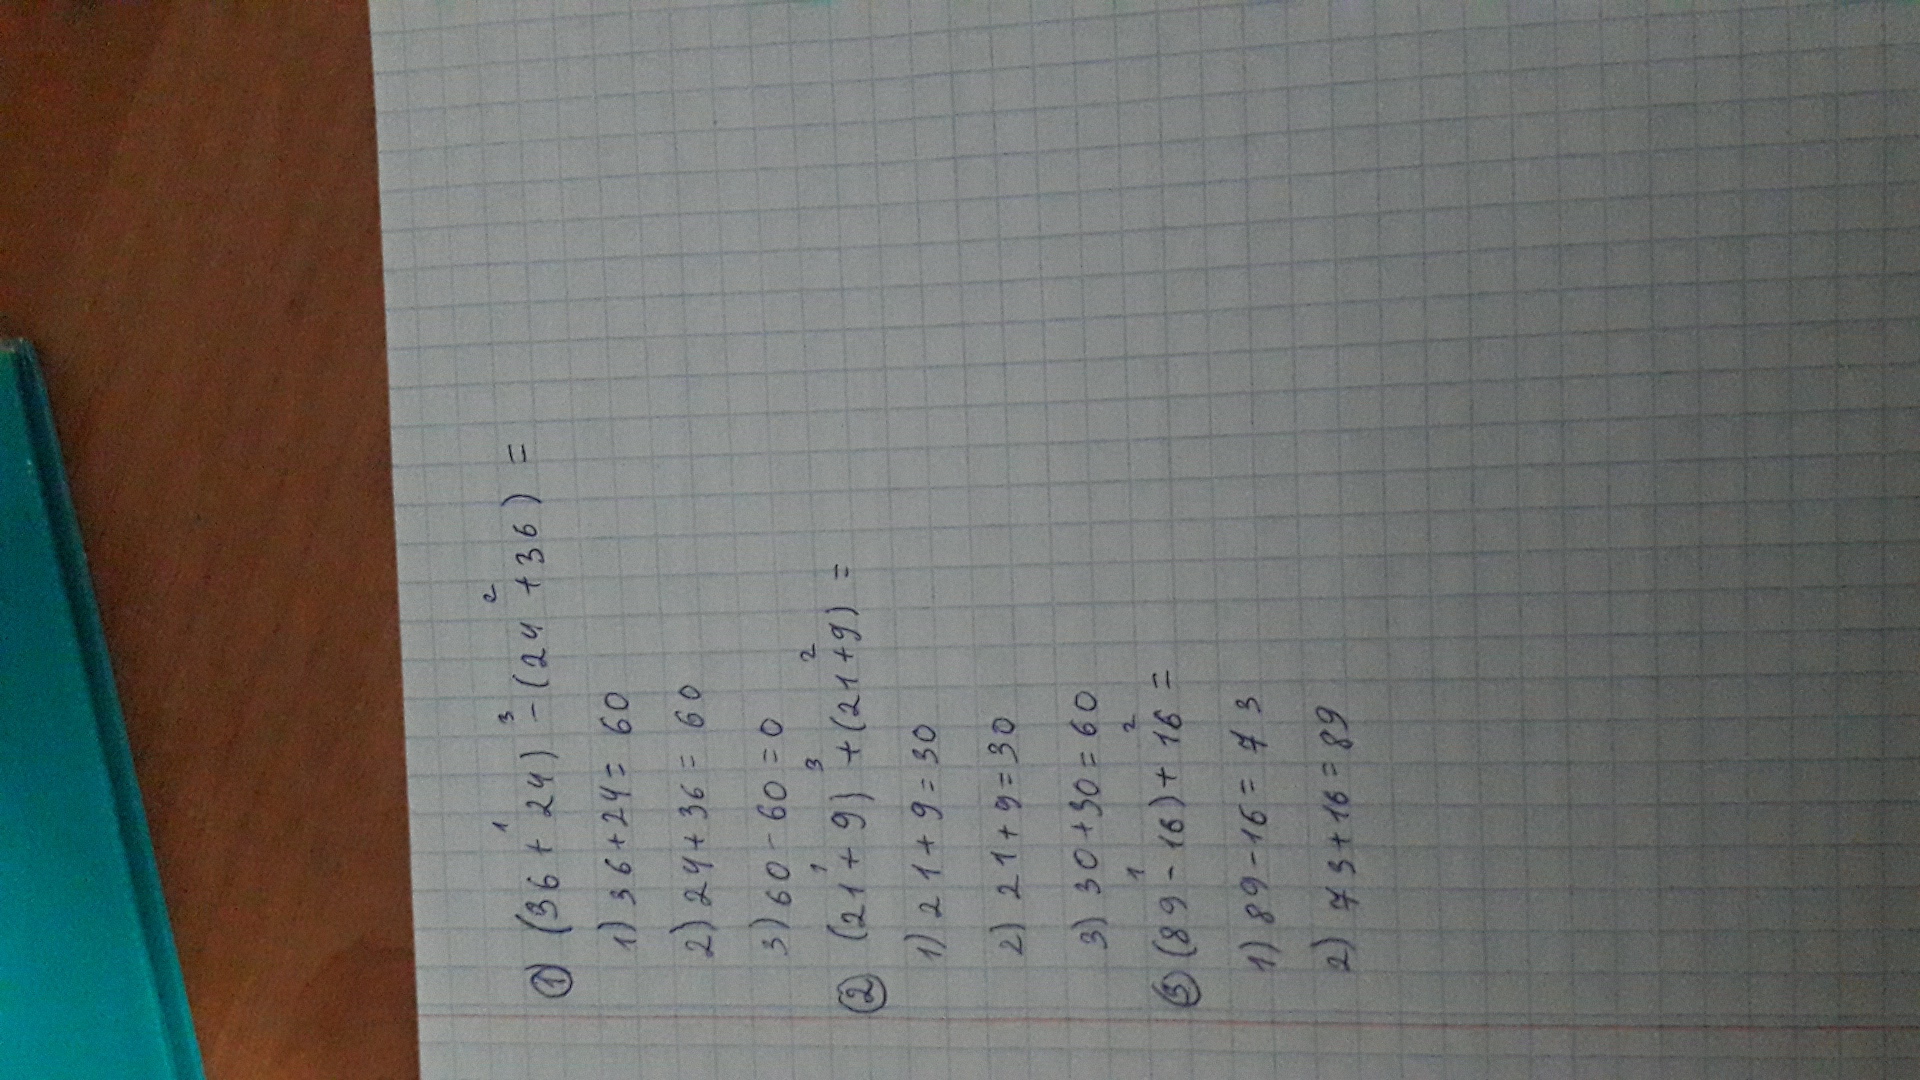 1 3 2
① (36+24)-(24+36)=
1) 36+24=60
2) 24+36=60
3) 60-60=0
1 3 2
② (21+9)+(21+9)=
1) 21+9=30
2) 21+9=30
3) 30+30=60
1 2
③ (89-16)+16=
1) 89-16=73
2) 73+16=89